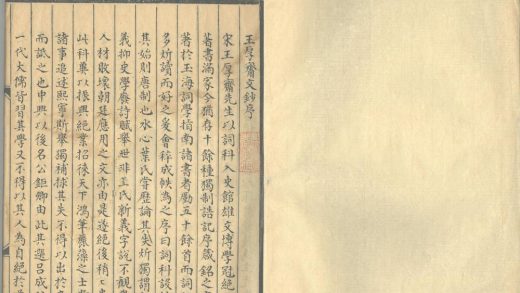 王厚齋文鈔序
宋王厚齋先生以詞科入史館雄文博學冠絕
著書滿家今猶存十餘種獨制誥記序箴銘之
著於玉海詞學指南諸書者廑五十餘首而詞
多妍讀而好之爰會稡成帙為之序曰詞科設
其始則唐制也水心葉氏嘗歷論其失所獨謂
義抑史學廢詩賦舉世非王氏新義字說不觀
人材敗壞朝廷應用之文亦由是遂絕後稍
此科要以振興絕業招徠天下鴻筆麗藻之士
諸事追述熙寧斯舉獨補捄其失不得以出於
而詆之也中興以後名公鉅卿由此其選呂成
一代大儒皆習其學又不得以其人為自絕於